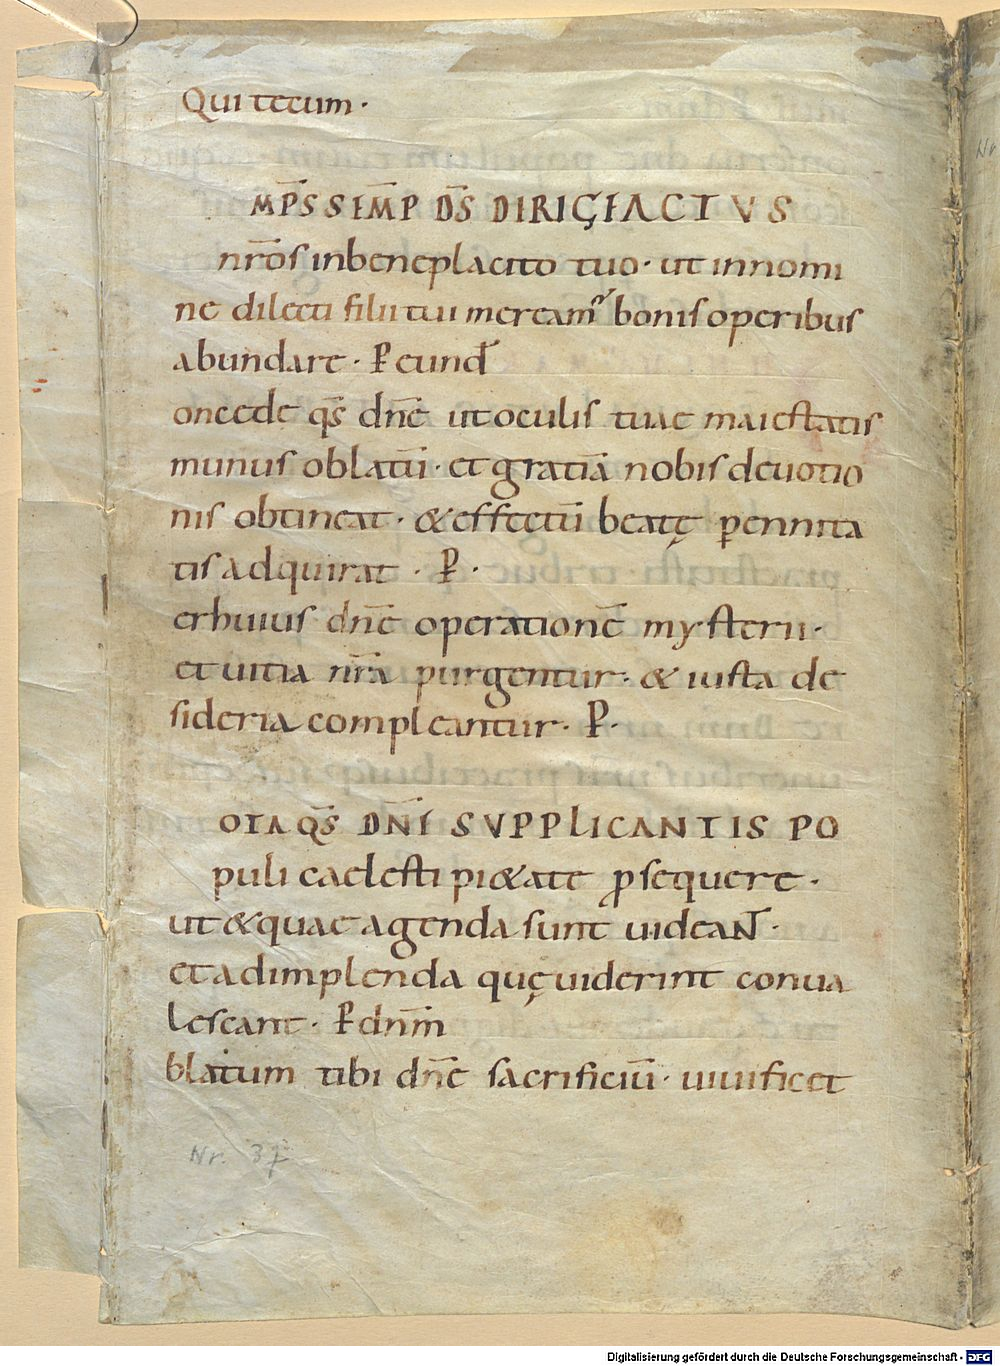 Qui tecum ·
M̄P̄S SEM̄P D̄S DIRIGE ACTVS
nr̄os inbeneplacito tuo · ut innomi
ne dilecti filii tui mereamr̃ bonis operibus
abundare · P̱ eund̄
oncede qs̄ dn̄e ut oculis tuae maiestatis
munus oblatū · et gratiā nobis deuotio
nis obtineat · & effectū beatę ꝑennita
tis adquirat · P̱ ·
er huius dn̄e operationē mysterii ·
et uitia nr̄a purgentur · & iusta de
sideria compleantur · P̱ ·
OTA QS̄ DN̄E SVPPLICANTIS PO
puli caelesti pi&ate ꝓsequere ·
ut & quae agenda sunt uideant ·
et adimplenda quę uiderint conua
lescant · P̱ dnm̄
blatum tibi dn̄e sacrificiū · uiuificet
Nr. 37
Digitalisierung gefördert durch die Deutsche Forschungsgemeinschaft - DFG